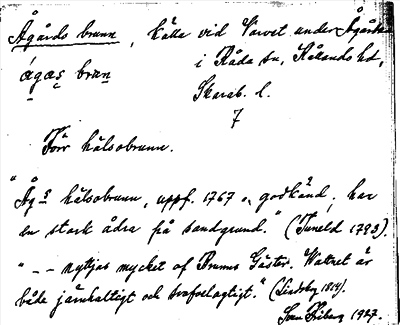 Ågårds brunn, källa vid Torvet under Ågården
i Råda sn, Kållands hd,
ågas brun
Skarab. l.
7
Förr hälsobrunn.
"Åg s hälsobrunn, uppf. 1767 o. godkänd, har
en stark ådra på sandgrund." (Tuneld 1793).
"-- nyttjas mycket af Brunns Gäster. Watnet är
både järnhaltigt och svafvelagtigt." (Lindskog 1814).
1927.